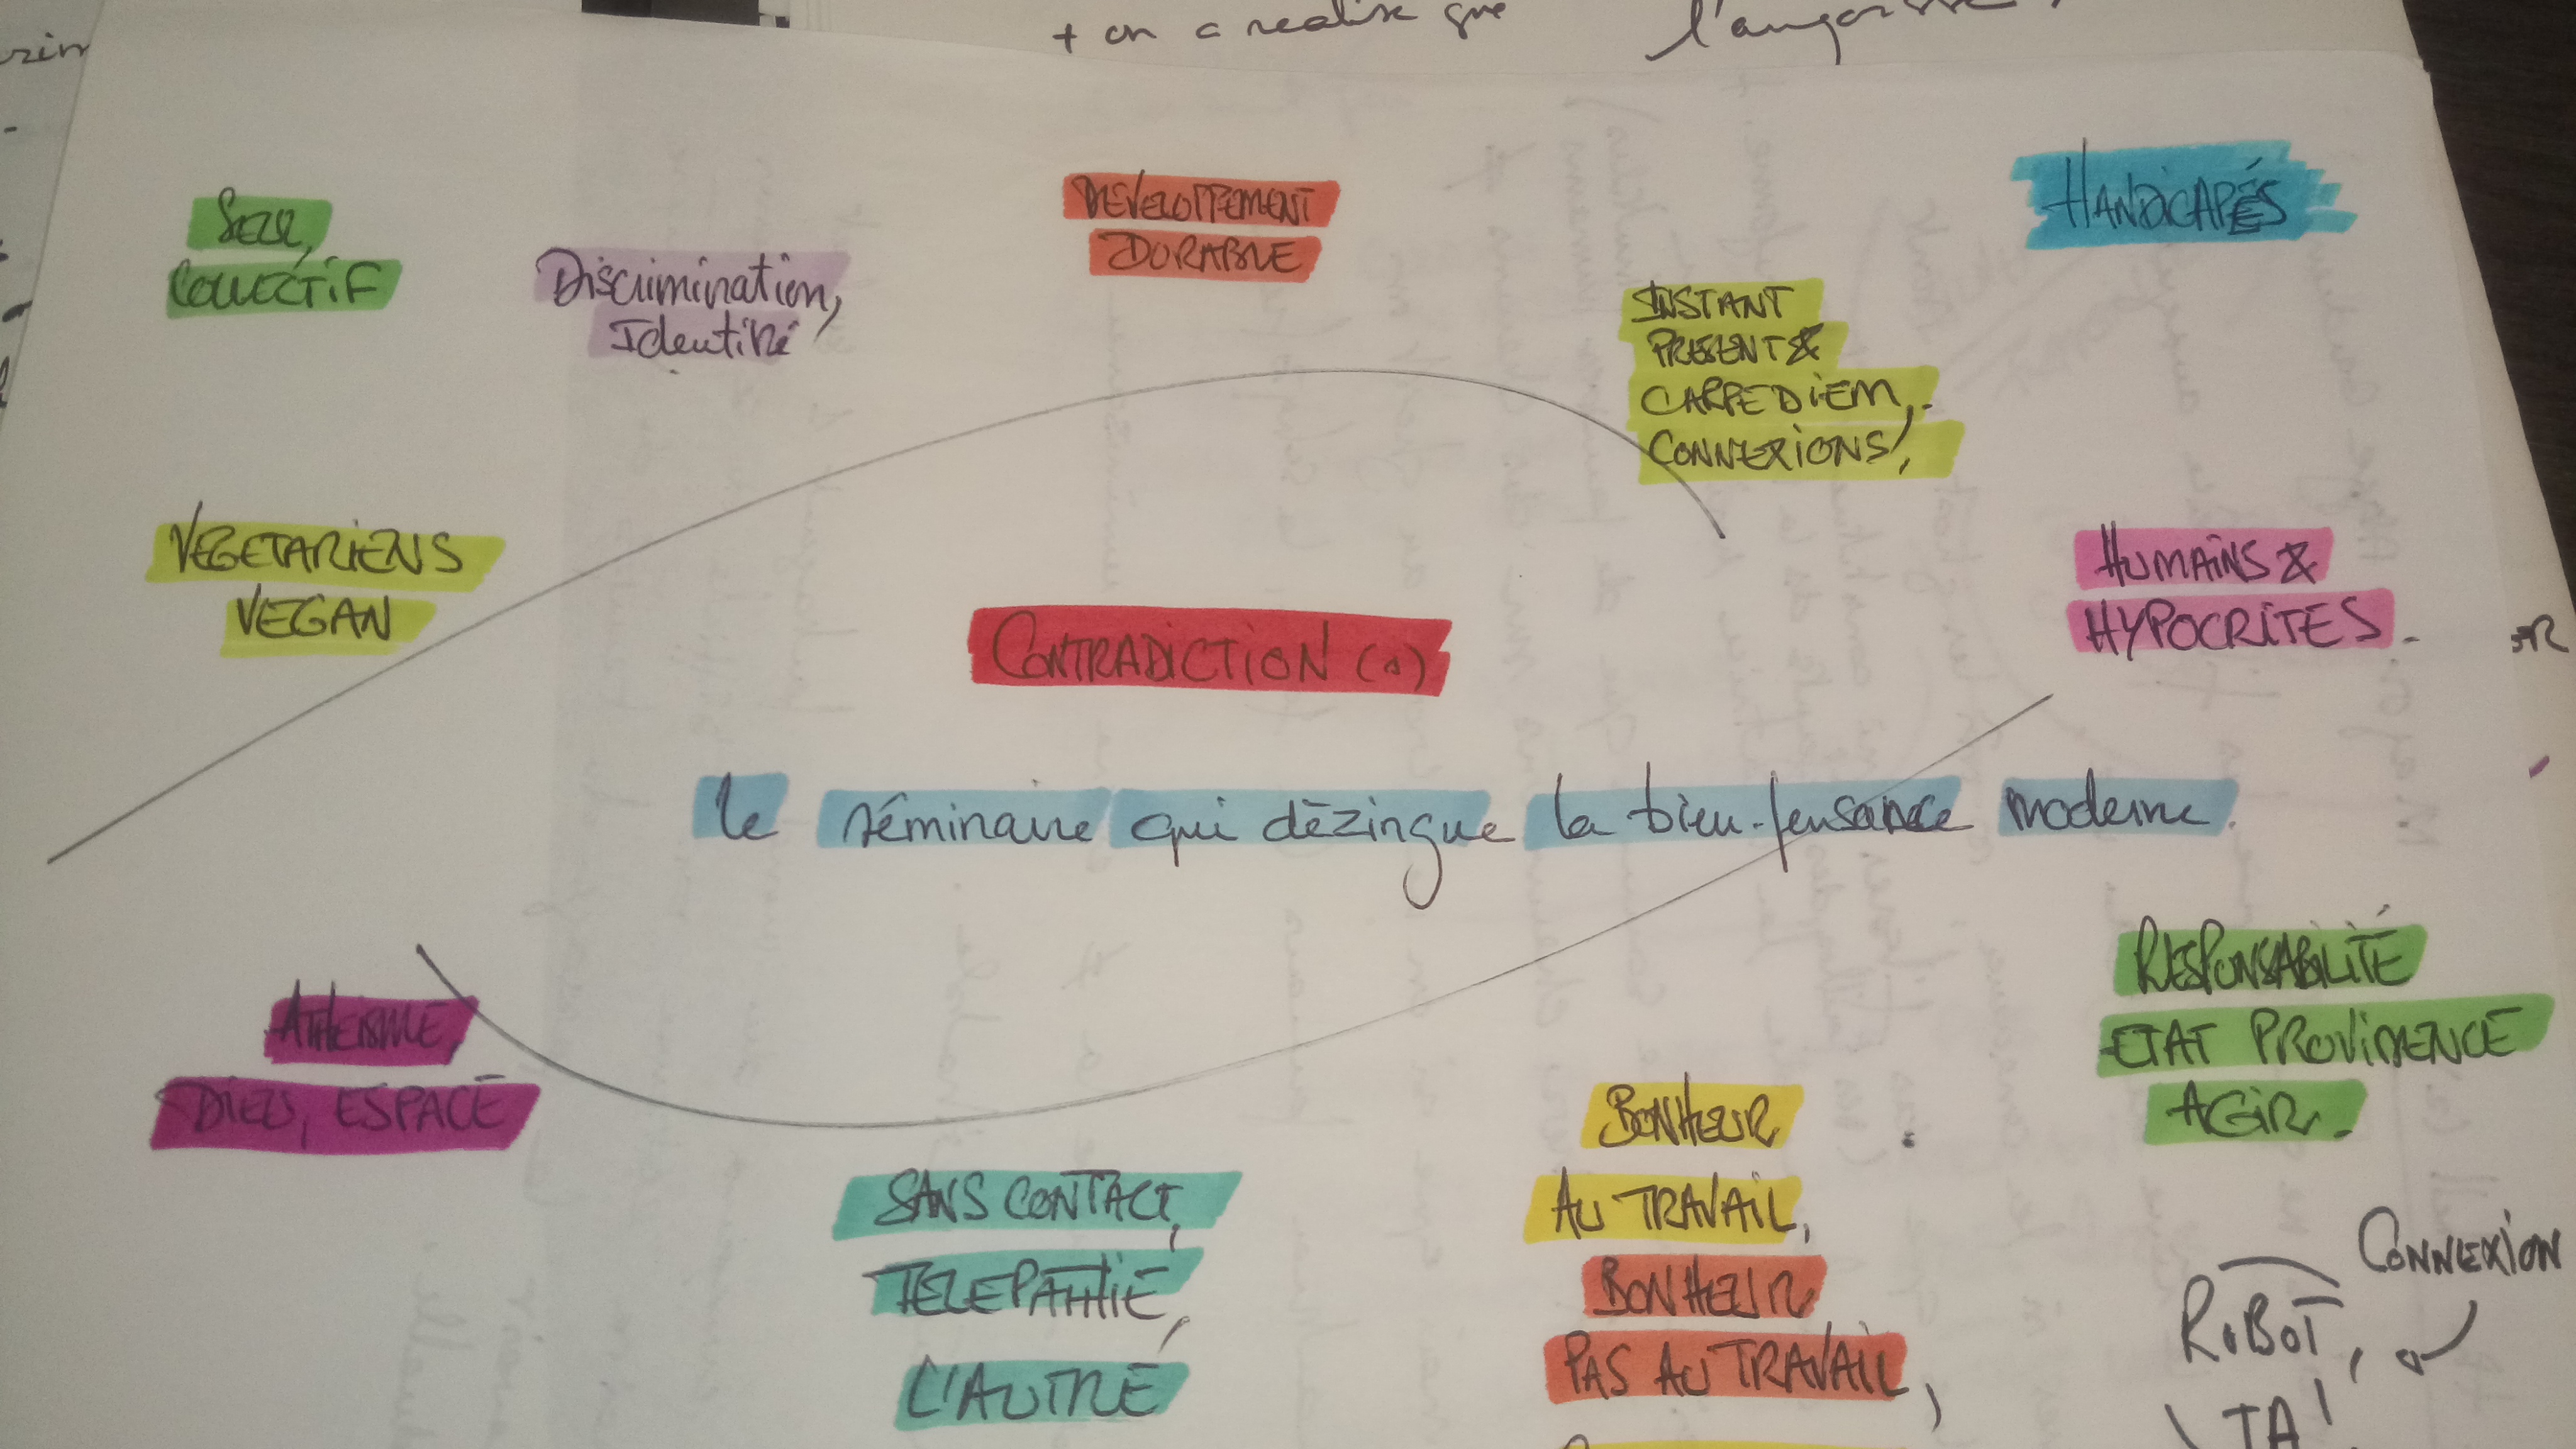 + on a realise que
Seul,
COLLECTIF
Discrimination,
Identité
DEVELOPPEMENT
DURABLE
HANDICAPÉS
INSTANT
PRESENT &
CARPEDIEM,
CONNEXIONS,
VEGETARIENS
VEGAN
HUMAINS &
HYPOCRITES.
CONTRADICTION (s)
le séminaire qui dézingue la bien-pensance moderne.
ATHEISME,
DIEU, ESPACE
RESPONSABILITÉ
ETAT PROVIDENCE
AGIR.
SANS CONTACT,
TELEPATHIE,
L'AUTRE
BONHEUR
AU TRAVAIL,
BONHEUR
PAS AU TRAVAIL,
CONNEXION
ROBOT,